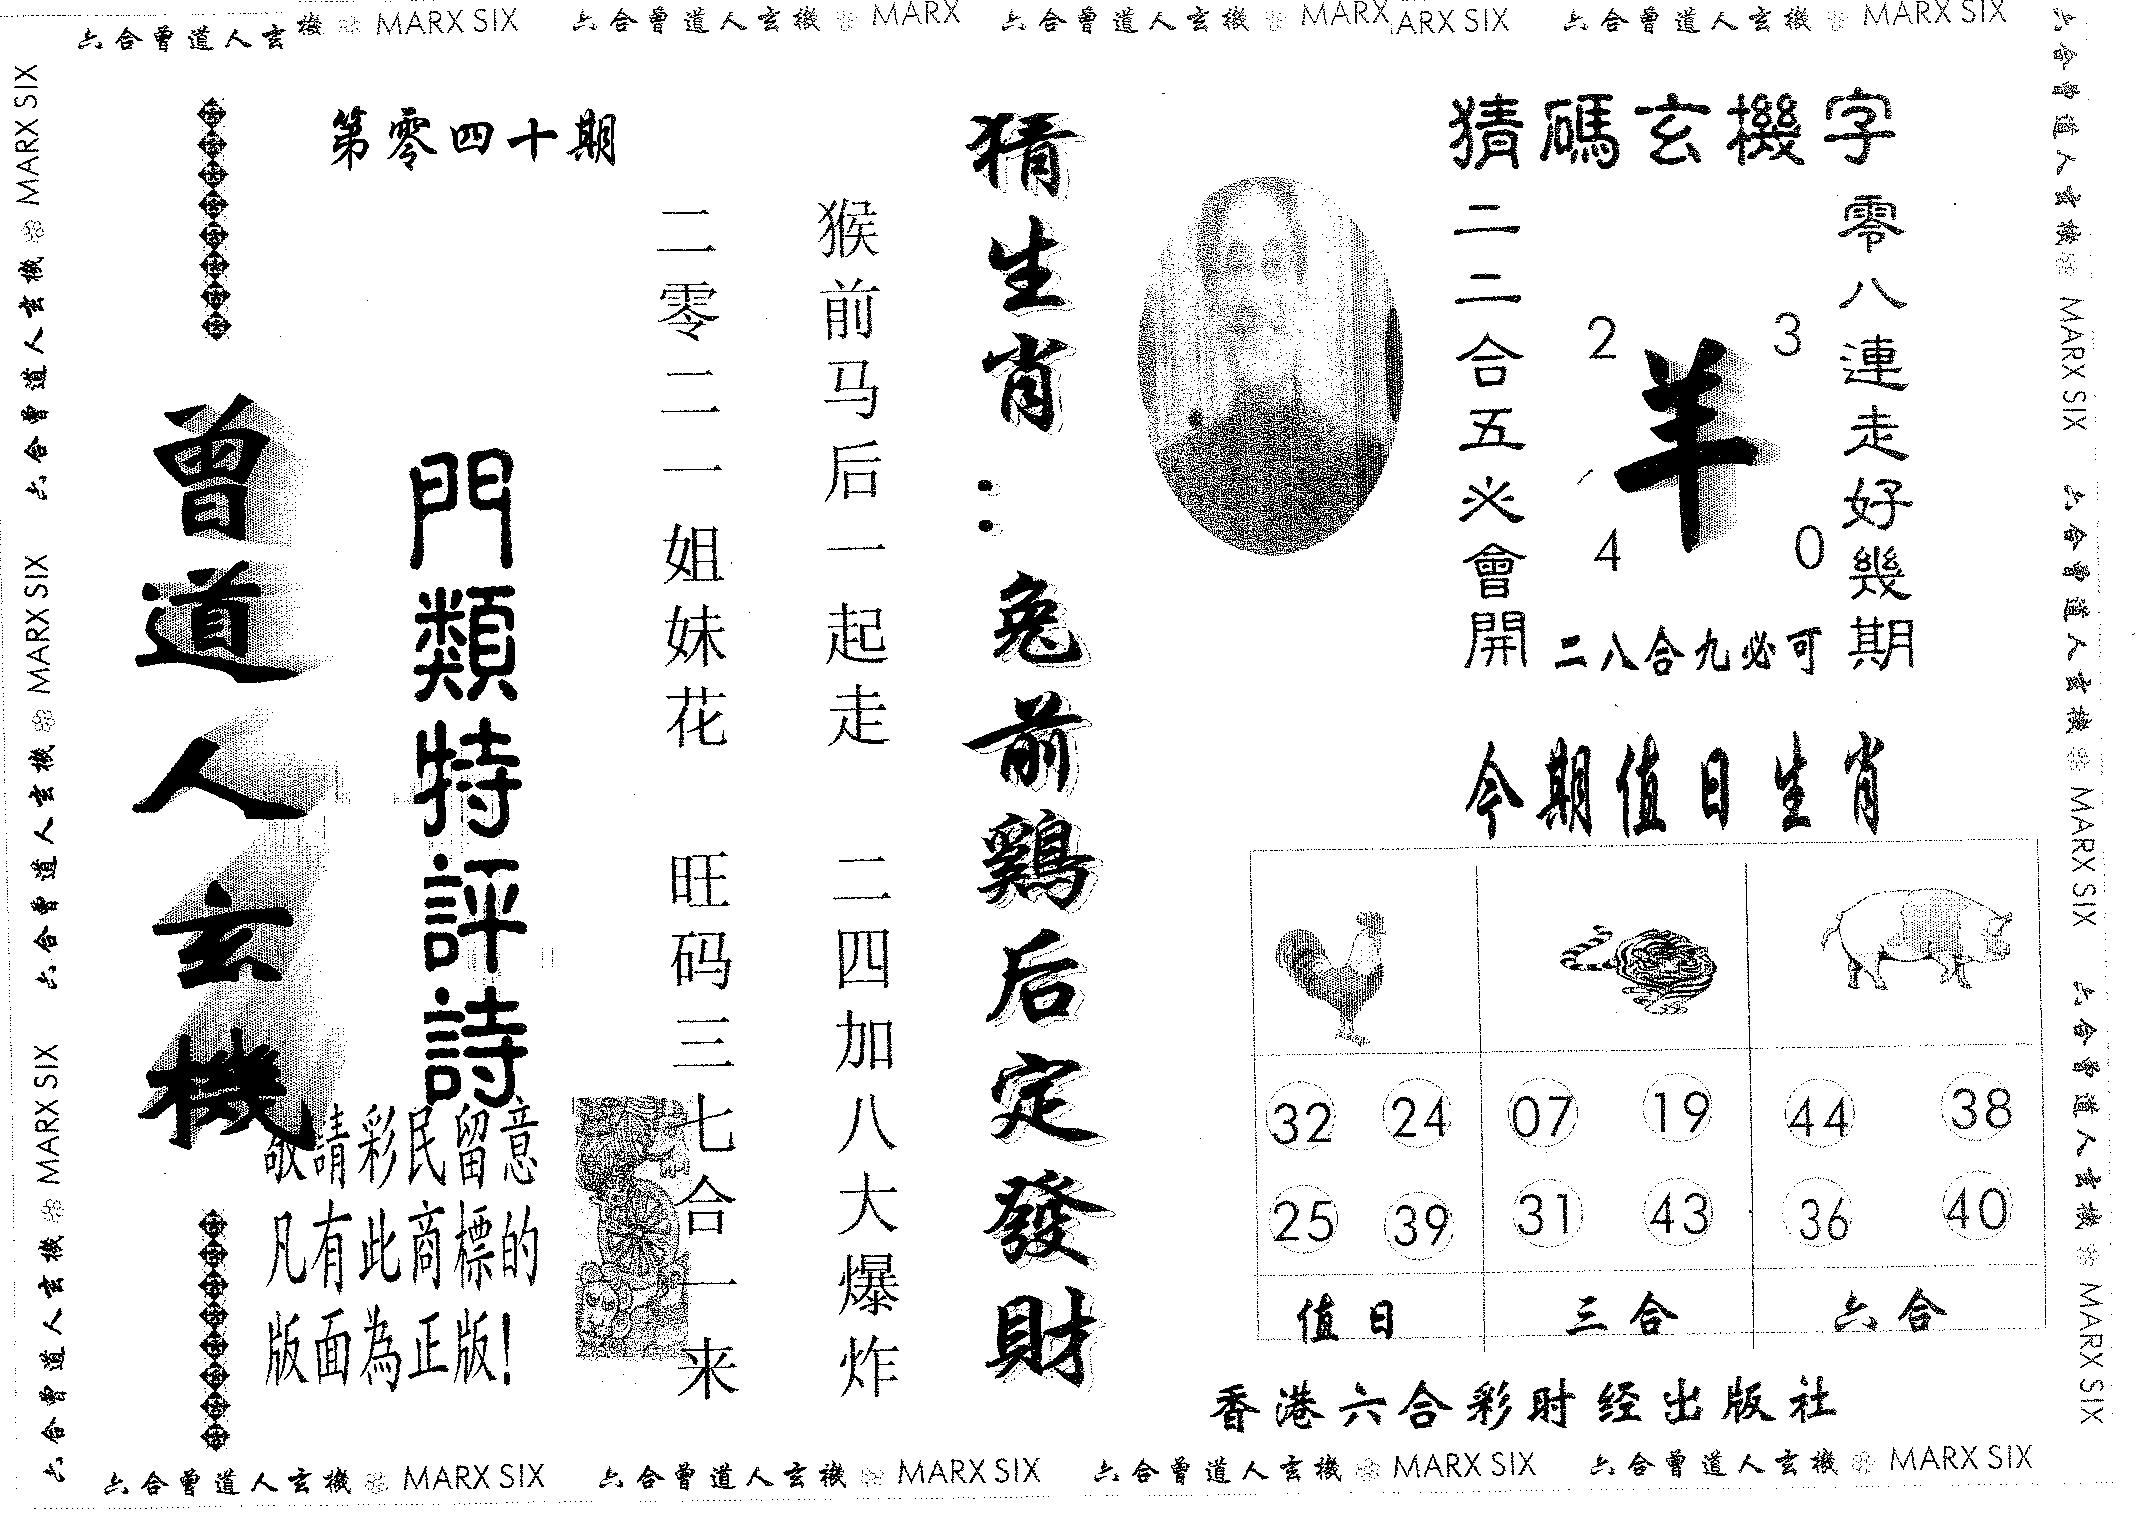 六合曾道人玄機 MARX SIX 六合曾道人玄機 MARX 六合曾道人玄機 MARX ARX SIX 六合曾道人玄機 MARX SIX
猜碼玄機字
零八連走好幾期
2 3
羊
4 0
二八合九必可
二二合五必會開
今期值日生肖
32 24 07 19 44 38
25 39 31 43 36 40
值日 三合 六合
香港六合彩财经出版社
猜生肖：兔前鷄后定發財
猴前马后一起走 二四加八大爆炸
二零二一姐妹花 旺码三七合一来
第零四十期
門類特評詩
曾道人玄機
敬請彩民留意
凡有此商標的
版面為正版!
六合曾道人玄機 MARX SIX 六合曾道人玄機 MARX SIX 六合曾道人玄機 MARX SIX
六合曾道人玄機 MARX SIX 六合曾道人玄機 MARX SIX 六合曾道人玄機 MARX SIX
六合曾道人玄機 MARX SIX 六合曾道人玄機 MARX SIX 六合曾道人玄機 MARX SIX 六合曾道人玄機 MARX SIX